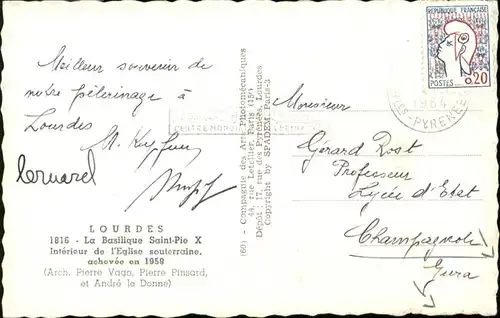 Meilleur souvenir de
notre pélerinage à
Lourdes
Bernard
LOURDES
1816 - La Basilique Saint-Pie X
Intérieur de l'Eglise souterraine,
achevée en 1958
(Arch. Pierre Vago, Pierre Pinsard,
et André le Donne)
(60) - Compagnie des Arts Photomécaniques
44, rue Letellier, Paris (15e)
Dépôt : 17, rue des Pyrénées, Lourdes
Copyright by SPADEM, Paris-3
REPUBLIQUE FRANÇAISE
POSTES 0,20
1964
PYRENEES
Monsieur
Gérard Rost
Professeur
Lycée d'Etat
Champagnole
Jura